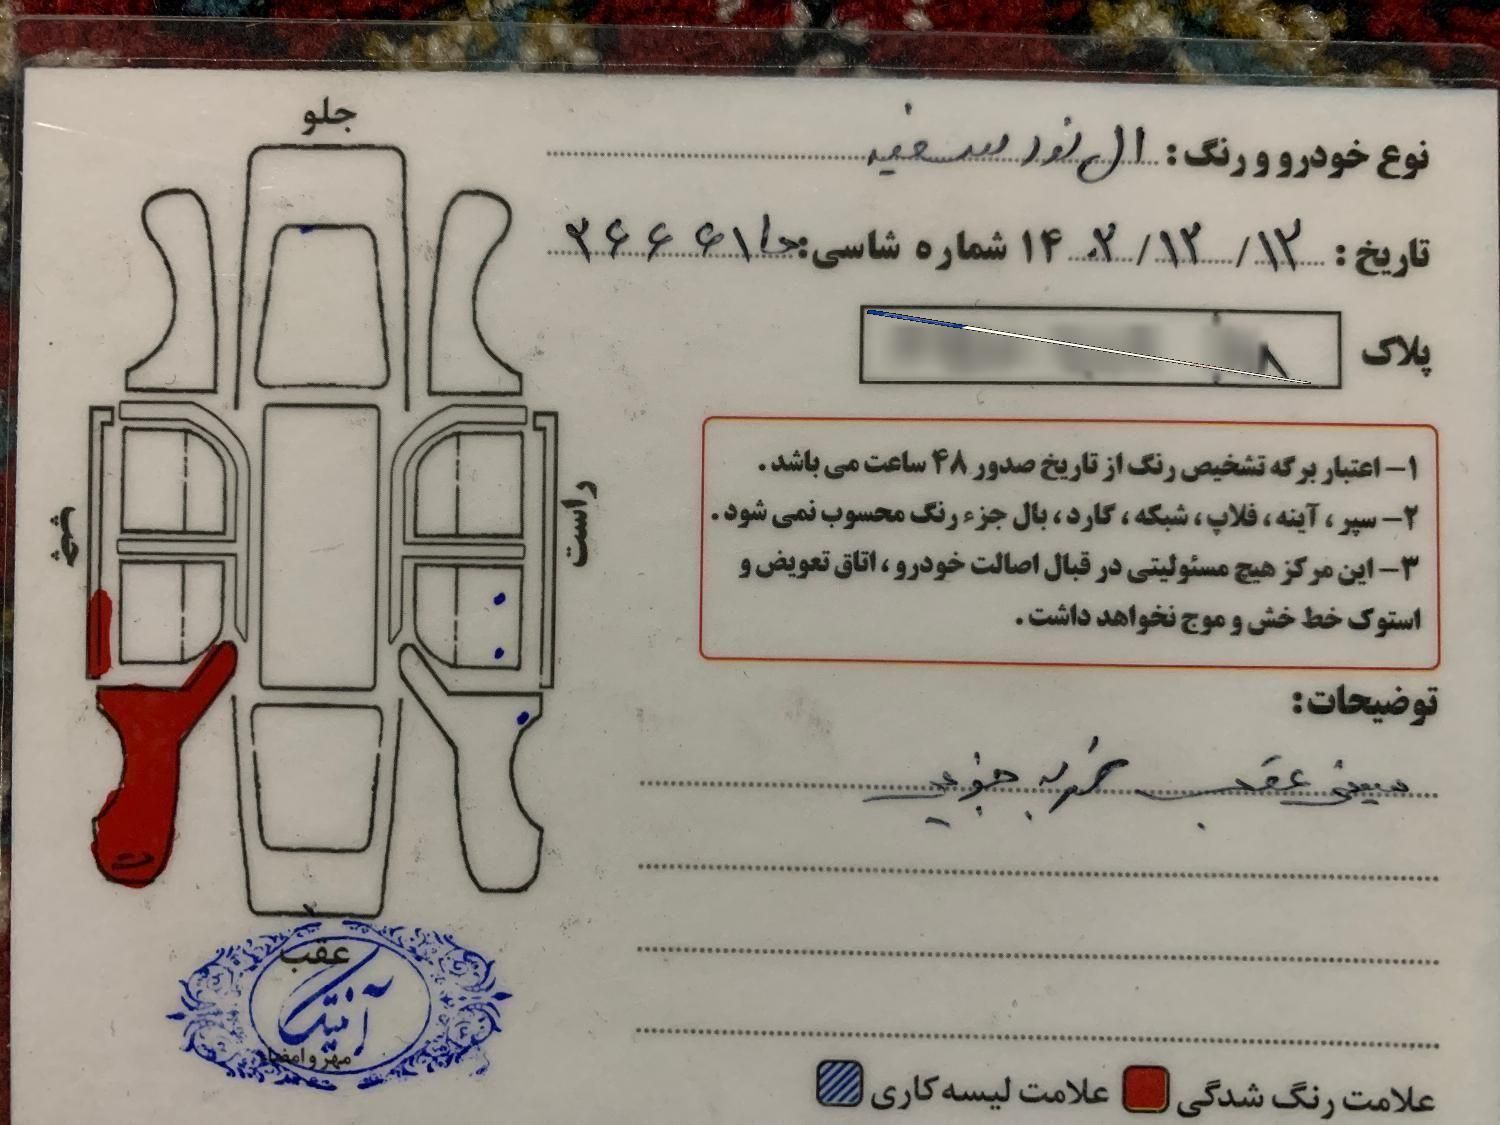 جلو
نوع خودرو و رنگ: ال نود سفید
تاریخ: ۱۴۰۲/۱۲/۱۲ شماره شاسی: ۲۶۶۶۱
پلاک ۸
۱- اعتبار برگه تشخیص رنگ از تاریخ صدور ۴۸ ساعت می باشد.
۲- سپر، آینه، فلاپ، شبکه، گارد، بال جزء رنگ محسوب نمی شود.
۳- این مرکز هیچ مسئولیتی در قبال اصالت خودرو، اتاق تعویض و
استوک خط خش و موج نخواهد داشت.
چپ
راست
توضیحات:
سینی عقب ضربه جزیی
عقب
آنتیک
مهر و امضاء
علامت رنگ شدگی علامت لیسه کاری